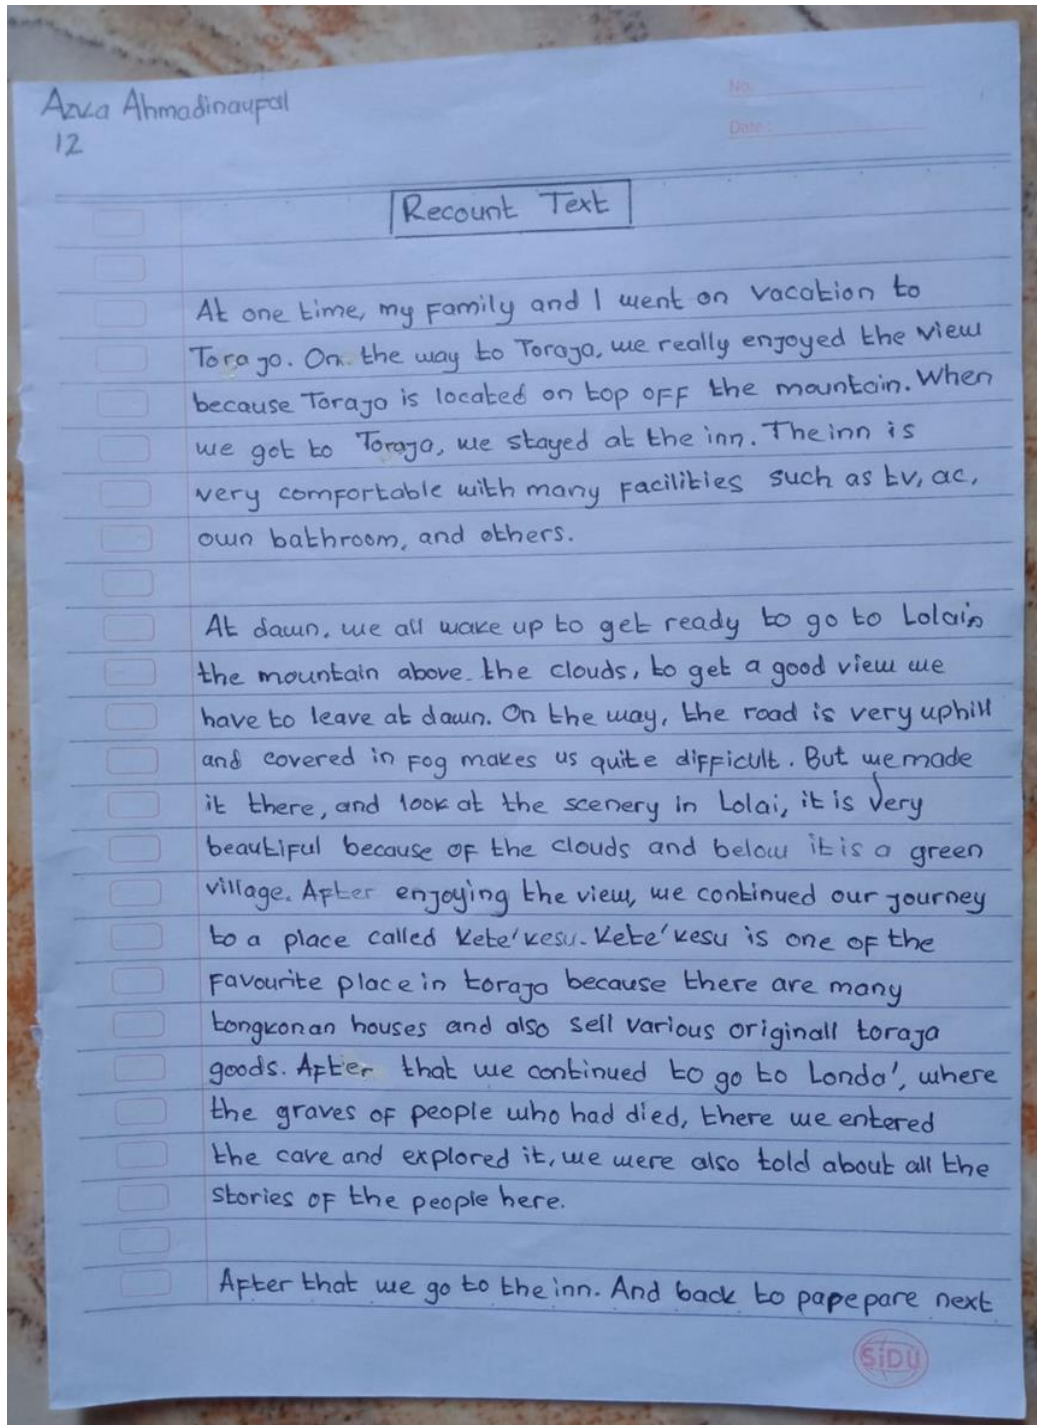 Azka Ahmadinaupal
12
No.
Date :
Recount Text
At one time, my family and I went on vacation to
Toraja. On the way to Toraja, we really enjoyed the view
because Toraja is located on top off the mountain. When
we got to Toraja, we stayed at the inn. The inn is
very comfortable with many facilities such as tv, ac,
own bathroom, and others.
At dawn, we all wake up to get ready to go to Lolai,
the mountain above the clouds, to get a good view we
have to leave at dawn. On the way, the road is very uphill
and covered in fog makes us quite difficult. But we made
it there, and look at the scenery in Lolai, it is very
beautiful because of the clouds and below it is a green
village. After enjoying the view, we continued our journey
to a place called kete'kesu. kete'kesu is one of the
favourite place in toraja because there are many
tongkonan houses and also sell various originall toraja
goods. After that we continued to go to Londa', where
the graves of people who had died, there we entered
the cave and explored it, we were also told about all the
stories of the people here.
After that we go to the inn. And back to papepare next
SiDU